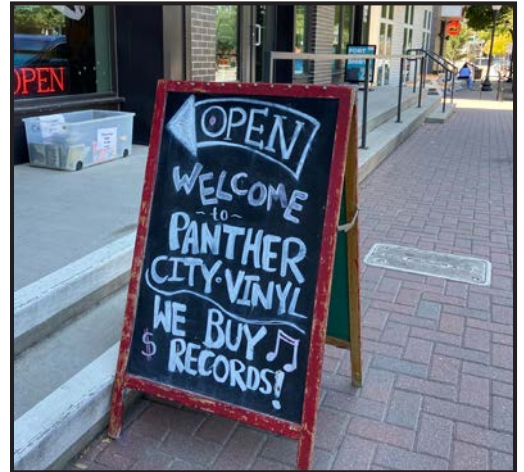 OPEN
WELCOME
-to-
PANTHER
CITY·VINYL
WE BUY
$ RECORDS!
OPEN